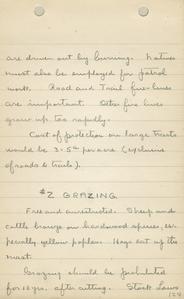 are driven out by burning. Natives
must also be employed for patrol
work. Road and Trail fire-lines
are important. Other fire lines
grow up too rapidly.
Cost of protection on large tracts
would be 3-5¢ per acre (exclusive
of roads & trails).
#2 GRAZING
Free and unrestricted. Sheep and
cattle browse on hardwood species, es-
pecially yellow poplar. Hogs eat up the
mast.
Grazing should be prohibited
for 10 yrs. after cutting. Stock Laws